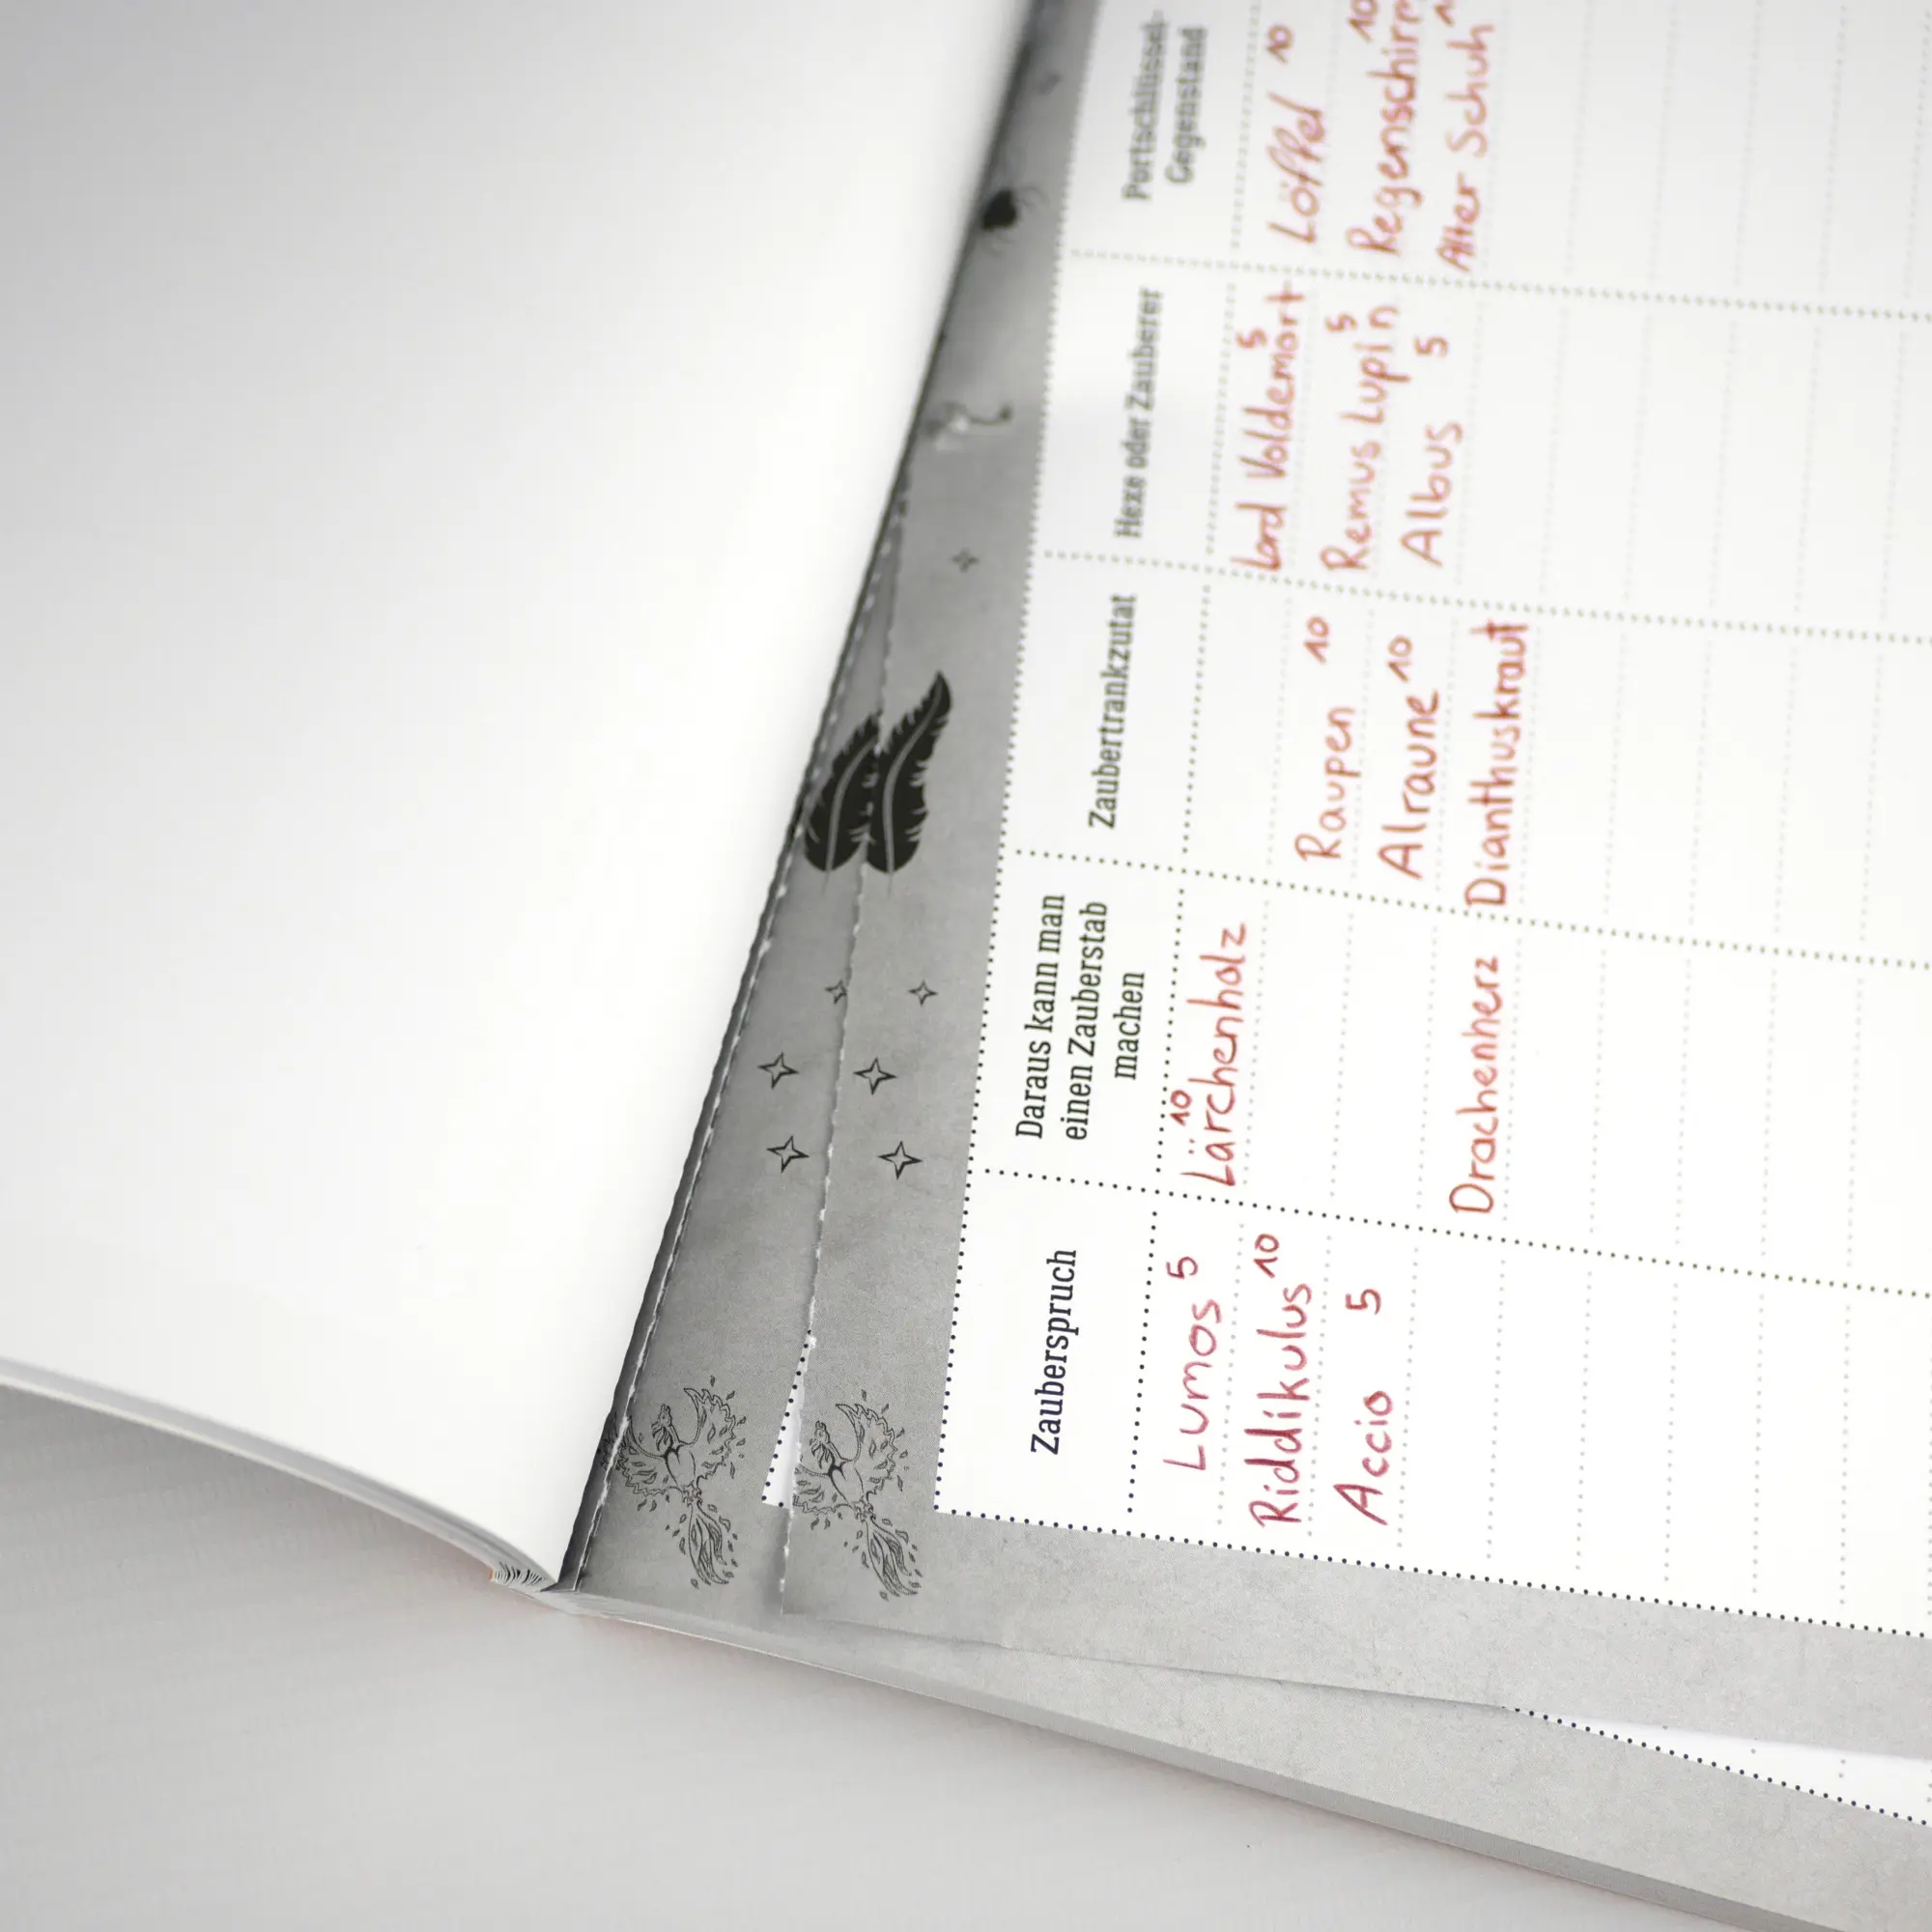 Zauberspruch
Daraus kann man
einen Zauberstab
machen
Zaubertrankzutat
Hexe oder Zauberer
Portschlüssel-
Gegenstand
Lumos 5
Lärchenholz 10
Lord Voldemort 5
Löffel 10
Riddikulus 10
Raupen 10
Remus Lupin 5
Regenschirm 10
Accio 5
Alraune 10
Albus 5
Alter Schuh
Drachenherz
Dianthuskraut